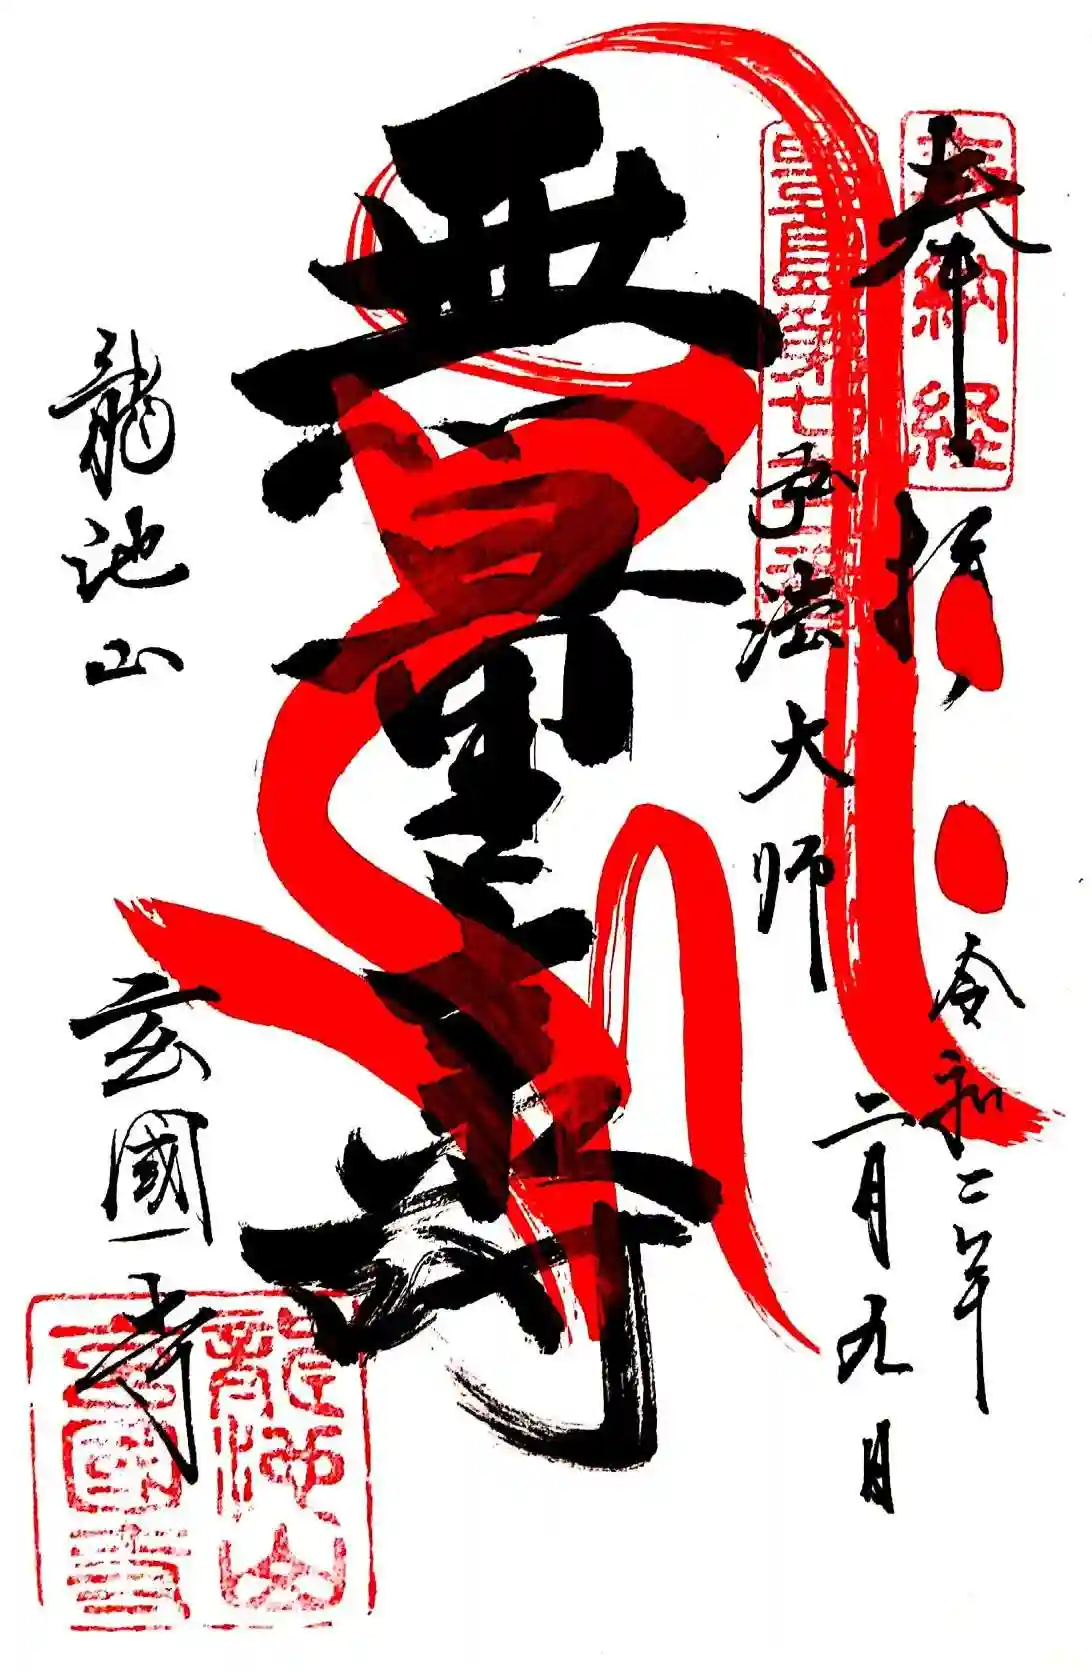 奉拝
奉納経
令和二年
二月九日
弘法大師
豊島第七
無量壽
龍池山
玄國寺
龍池山
玄國寺